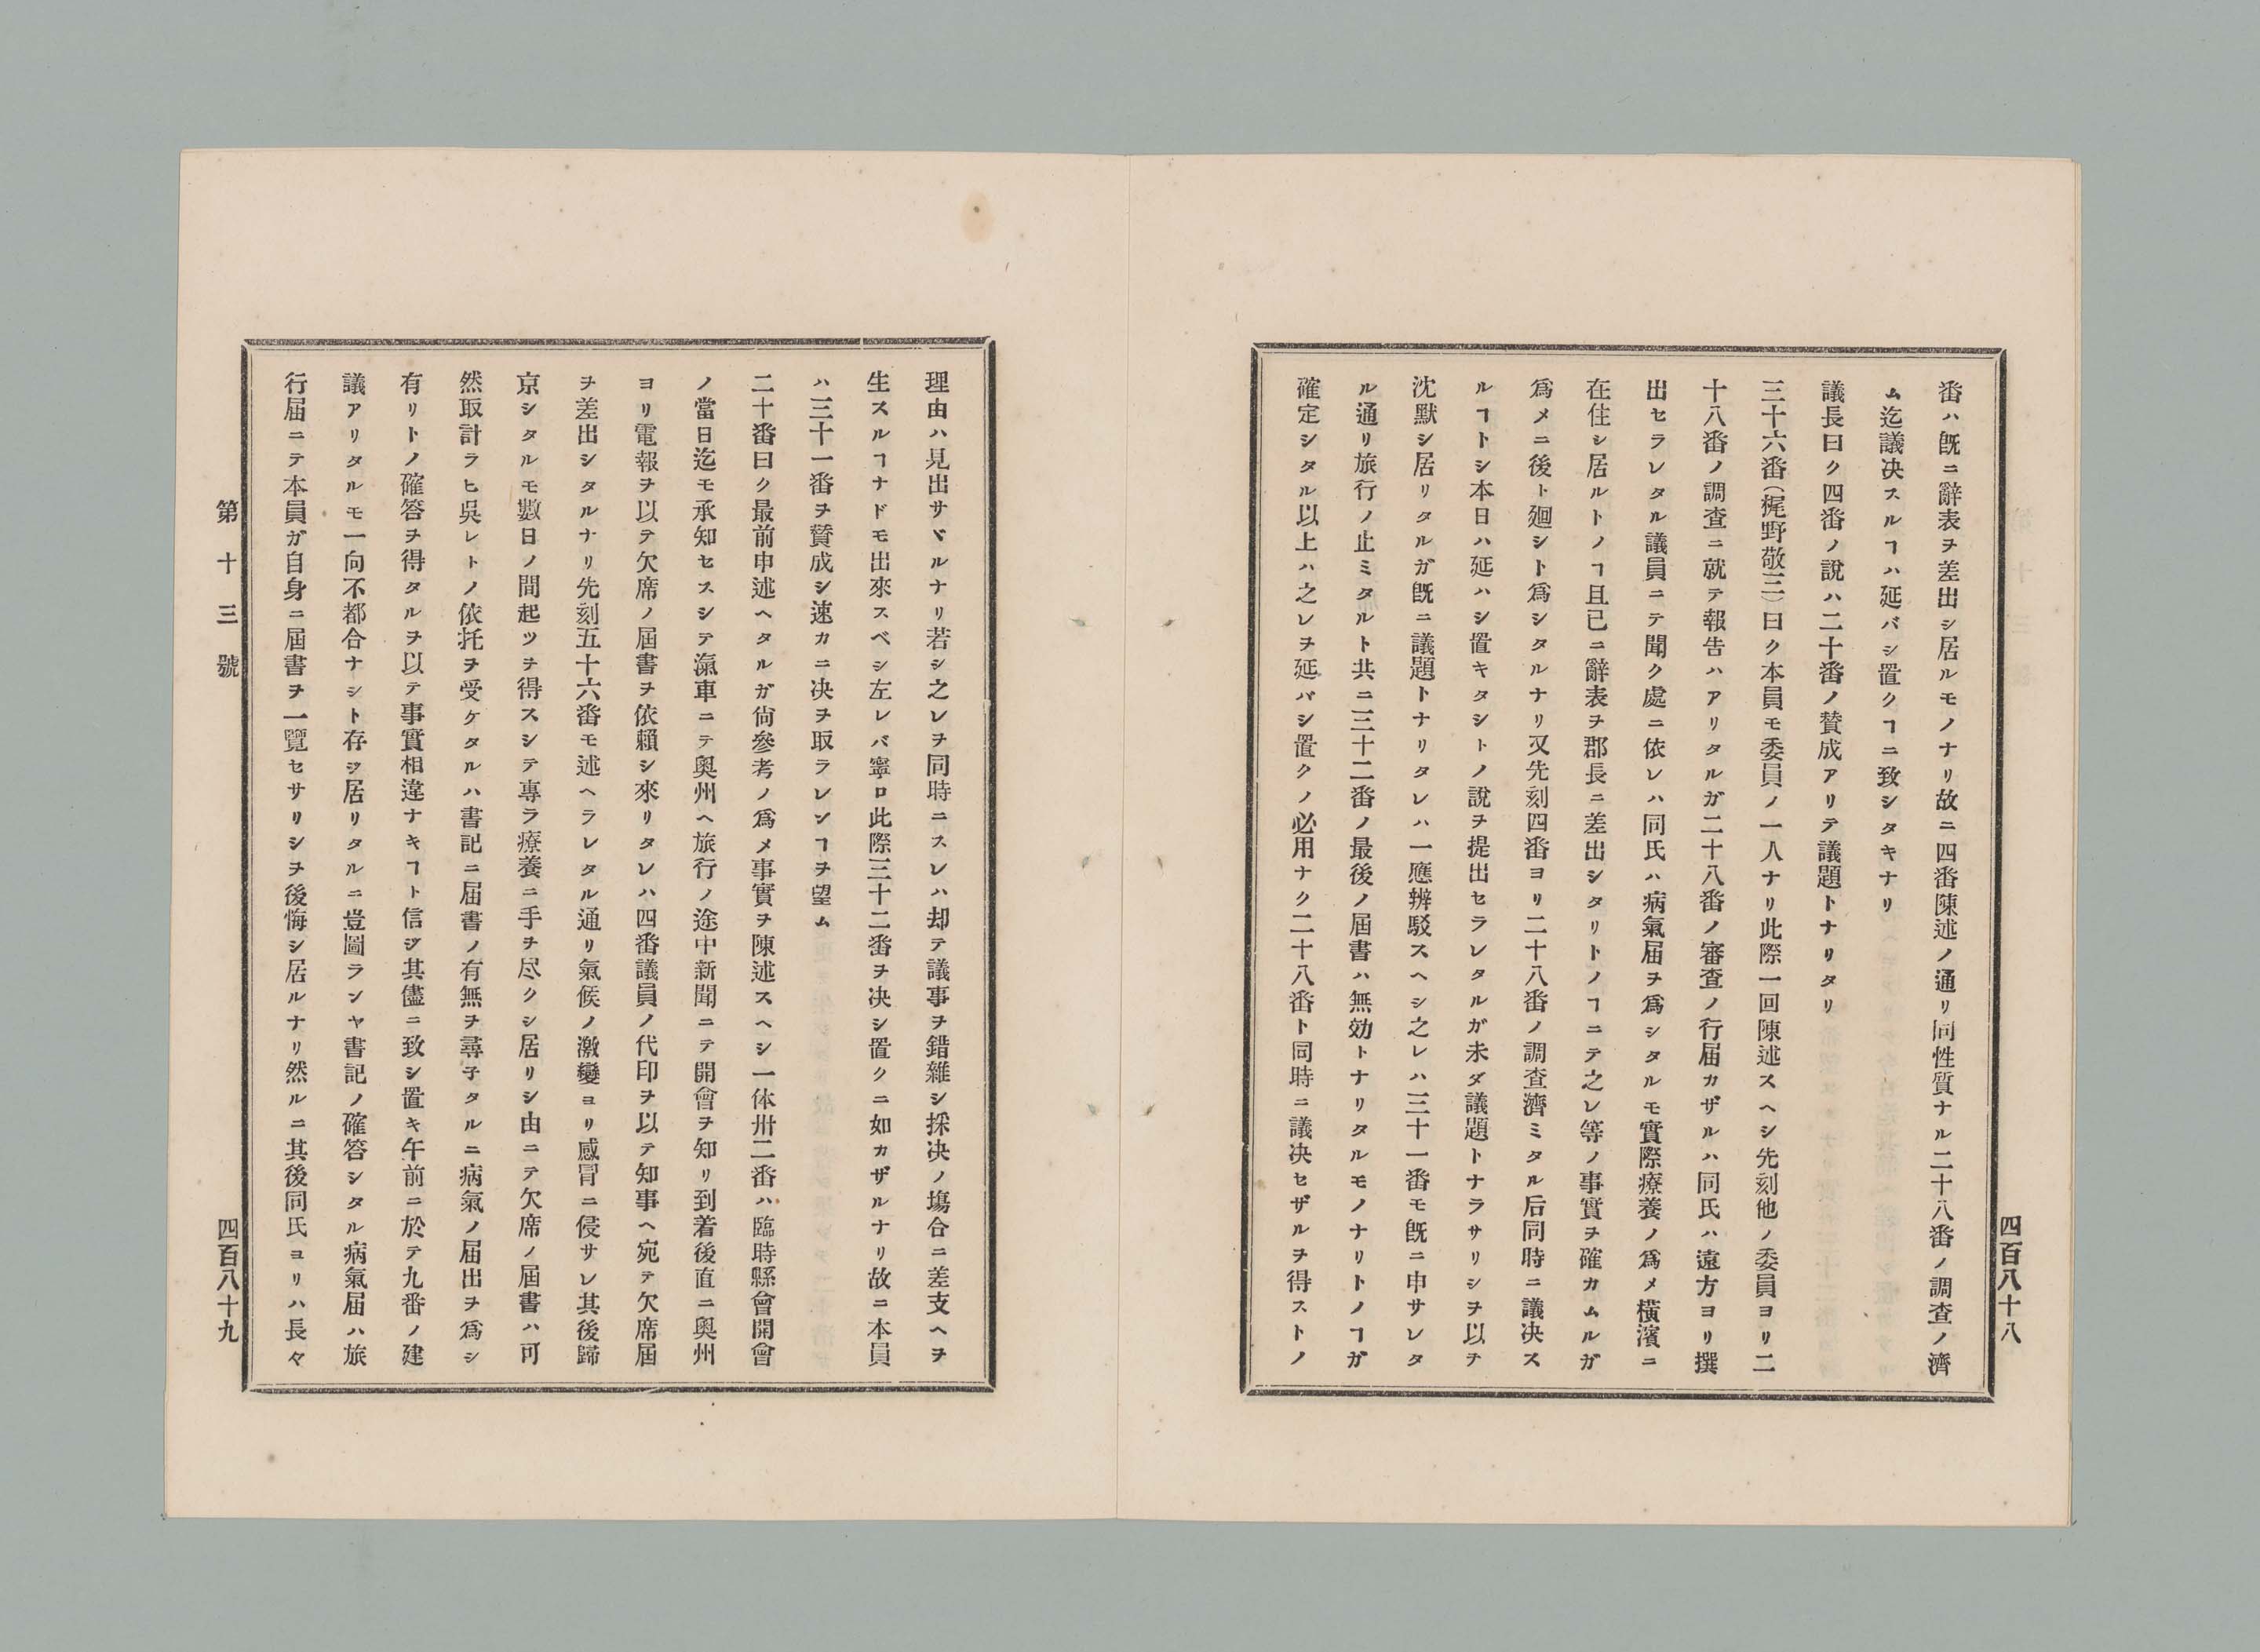 四百八十八
番ハ旣ニ辭表ヲ差出シ居ルモノナリ故ニ四番陳述ノ通リ同性質ナル二十八番ノ調査ノ濟
ム迄議决スルヿハ延バシ置クヿニ致シタキナリ
議長曰ク四番ノ說ハ二十番ノ賛成アリテ議題トナリタリ
三十六番(梶野敬三)曰ク本員モ委員ノ一人ナリ此際一回陳述スヘシ先刻他ノ委員ヨリ二
十八番ノ調査ニ就テ報告ハアリタルガ二十八番ノ審査ノ行届カザルハ同氏ハ遠方ヨリ撰
出セラレタル議員ニテ聞ク處ニ依レハ同氏ハ病氣届ヲ爲シタルモ實際療養ノ爲メ橫濱ニ
在住シ居ルトノヿ且已ニ辭表ヲ郡長ニ差出シタリトノヿニテ之レ等ノ事實ヲ確カムルガ
爲メニ後ト廻シト爲シタルナリ又先刻四番ヨリ二十八番ノ調査濟ミタル后同時ニ議决ス
ルヿトシ本日ハ延ハシ置キタシトノ說ヲ提出セラレタルガ未ダ議題トナラサリシヲ以テ
沈默シ居リタルガ旣ニ議題トナリタレハ一應辨駁スヘシ之レハ三十一番モ旣ニ申サレタ
ル通リ旅行ノ止ミタルト共ニ三十二番ノ最後ノ屆書ハ無効トナリタルモノナリトノヿガ
確定シタル以上ハ之レヲ延バシ置クノ必用ナク二十八番ト同時ニ議决セザルヲ得ストノ
理由ハ見出サヾルナリ若シ之レヲ同時ニスレハ却テ議事ヲ錯雜シ採决ノ塲合ニ差支ヘヲ
生スルヿナドモ出來スベシ左レバ寧ロ此際三十二番ヲ决シ置クニ如カザルナリ故ニ本員
ハ三十一番ヲ賛成シ速カニ决ヲ取ラレンヿヲ望ム
二十番曰ク最前申述ヘタルガ尙參考ノ爲メ事實ヲ陳述スヘシ一体卅二番ハ臨時縣會開會
ノ當日迄モ承知セスシテ滊車ニテ奥州ヘ旅行ノ途中新聞ニテ開會ヲ知リ到着後直ニ奥州
ヨリ電報ヲ以テ欠席ノ屆書ヲ依賴シ來リタレハ四番議員ノ代印ヲ以テ知事ヘ宛テ欠席屆
ヲ差出シタルナリ先刻五十六番モ述ヘラレタル通リ氣候ノ激變ヨリ感冒ニ侵サレ其後歸
京シタルモ數日ノ間起ツヲ得スシテ專ラ療養ニ手ヲ尽クシ居リシ由ニテ欠席ノ屆書ハ可
然取計ラヒ吳レトノ依托ヲ受ケタルハ書記ニ届書ノ有無ヲ尋子タルニ病氣ノ届出ヲ爲シ
有リトノ確答ヲ得タルヲ以テ事實相違ナキヿト信ジ其儘ニ致シ置キ午前ニ於テ九番ノ建
議アリタルモ一向不都合ナシト存ジ居リタルニ豈圖ランヤ書記ノ確答シタル病氣届ハ旅
行届ニテ本員ガ自身ニ屆書ヲ一覽セサリシヲ後悔シ居ルナリ然ルニ其後同氏ヨリハ長々
第十三號
四百八十九